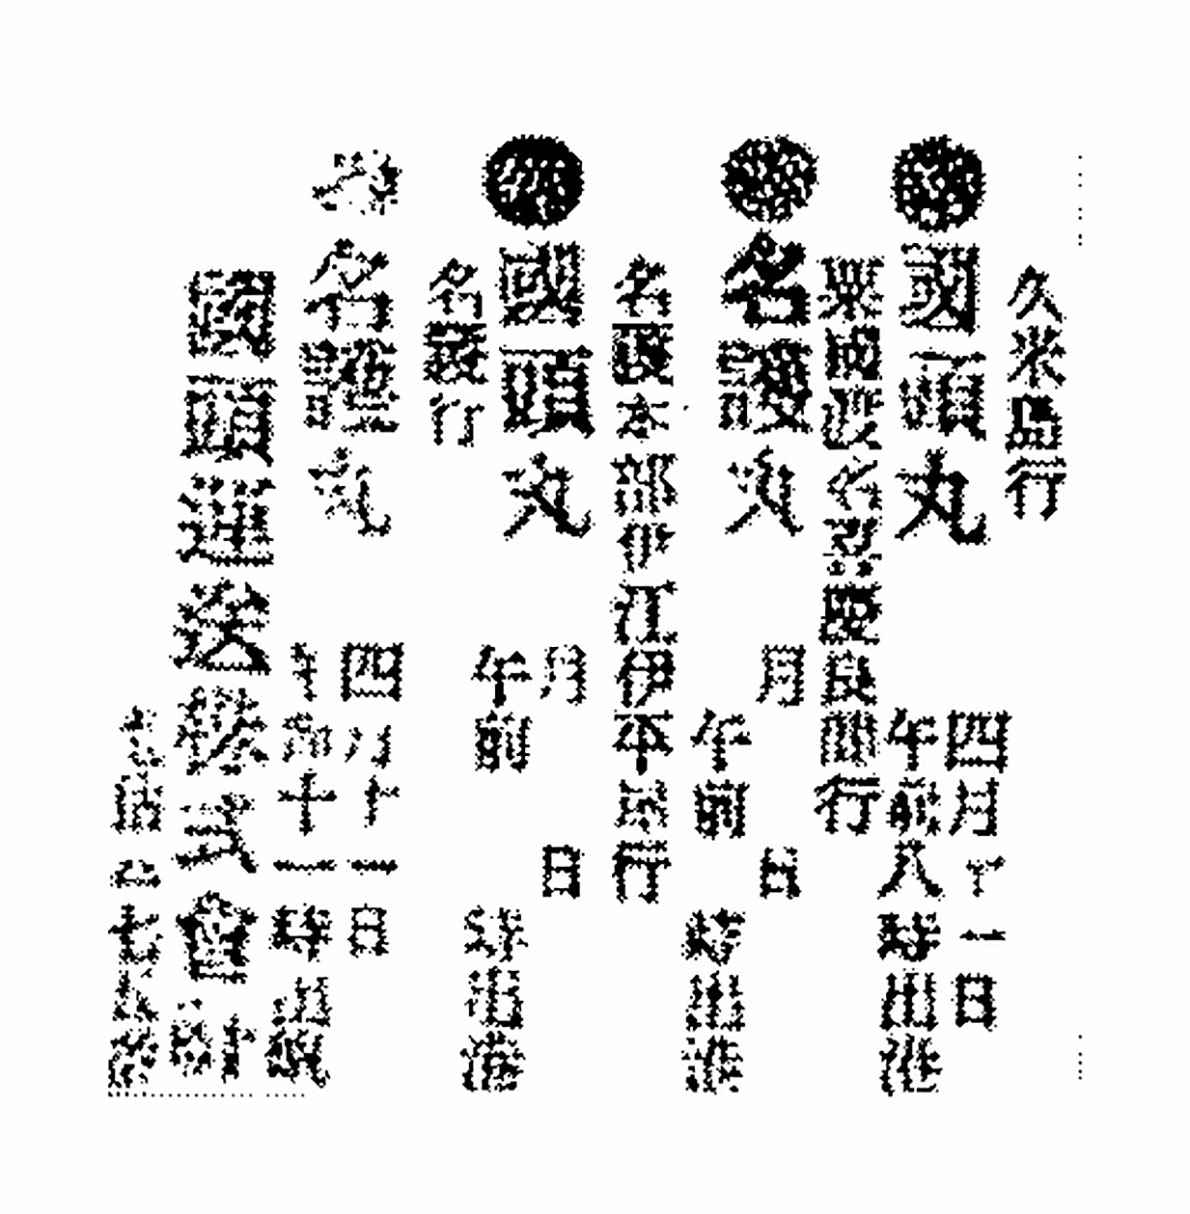 久米島行
國頭丸
四月十一日
午前八時出港
粟國渡名喜慶良間行
名護丸
月 日
午前 時出港
名護本部伊江伊平屋行
國頭丸
月 日
午前 時出港
名護行
名護丸
四月十一日
午前十一時出
國頭運送株式會社